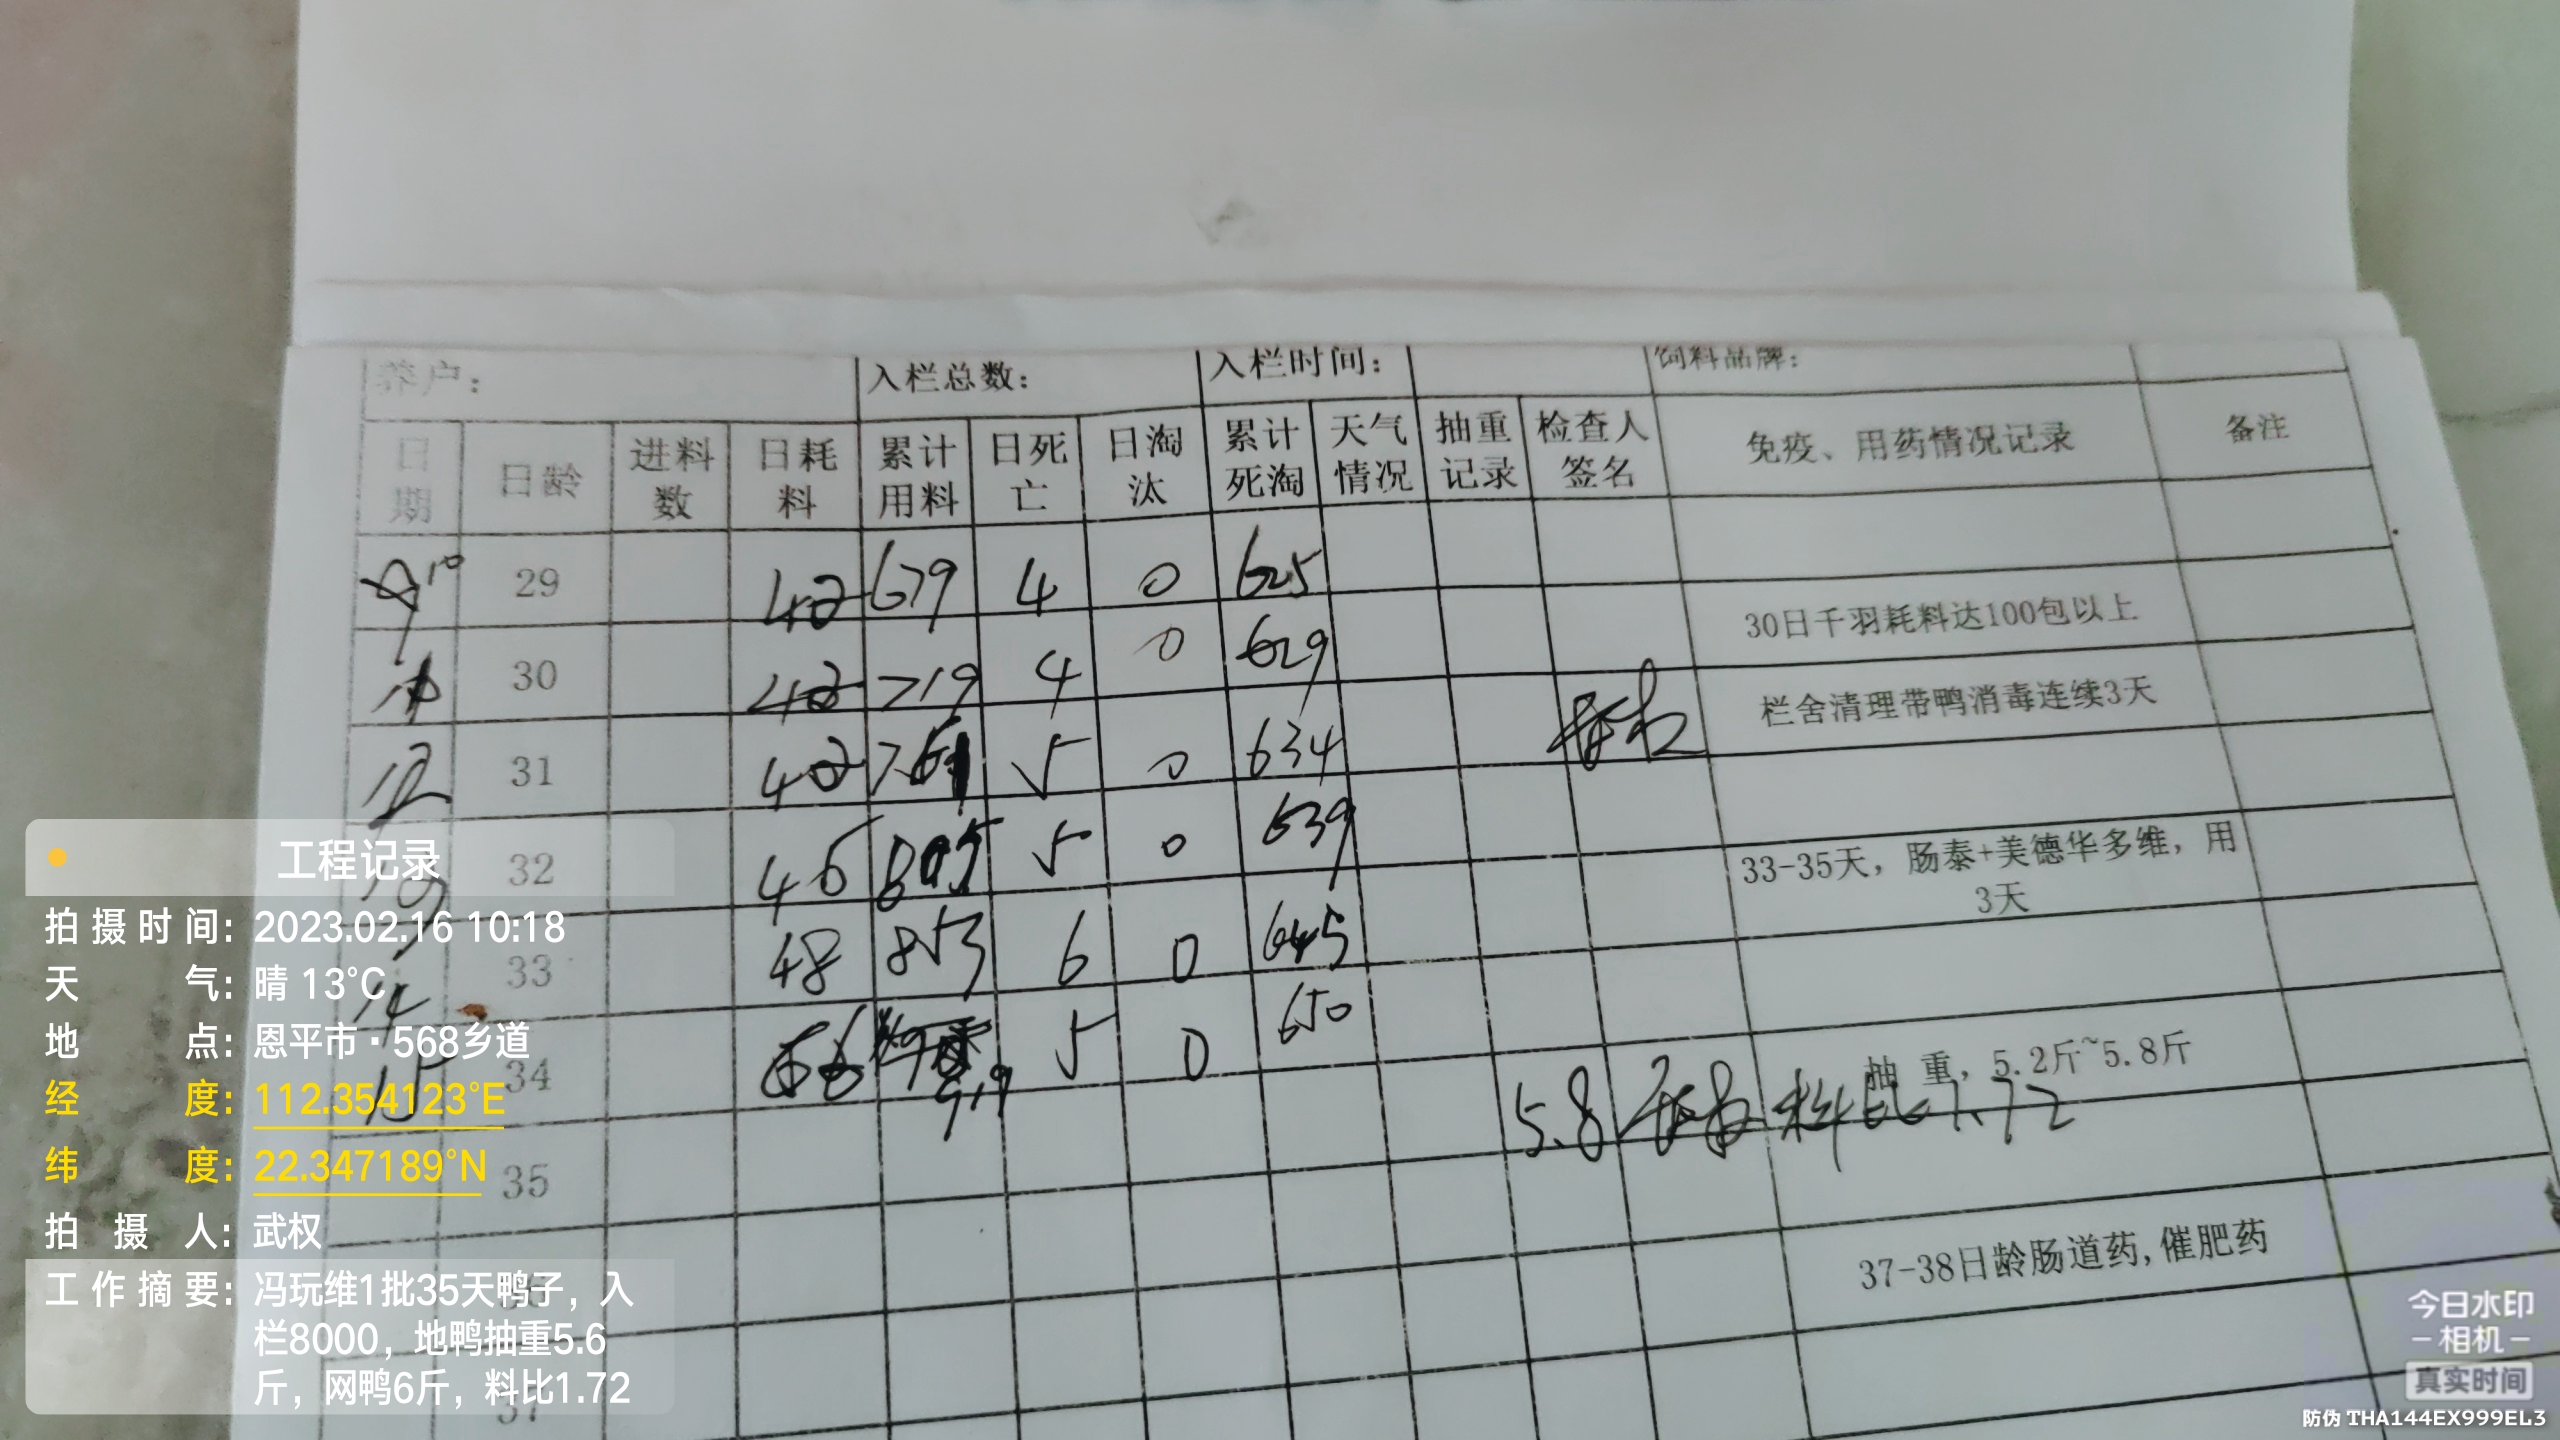 养户： 入栏总数： 入栏时间： 饲料品牌：
日期 日龄 进料数 日耗料 累计用料 日死亡 日淘汰 累计死淘 天气情况 抽重记录 检查人签名 免疫、用药情况记录 备注
10 29 679 4 0 625
30 719 4 0 629 30日千羽耗料达100包以上
12 31 761 5 0 634 栏舍清理带鸭消毒连续3天
13 32 46 805 5 0 639
33-35天，肠泰+美德华多维，用
3天
14 33 48 853 6 0 645
15 34 66 919 5 0 650
抽 重，5.2斤~5.8斤
5.8 料比1.72
35
37-38日龄肠道药，催肥药
37
工程记录
拍摄时间：2023.02.16 10:18
天气：晴 13℃
地点：恩平市·568乡道
经度：112.354123°E
纬度：22.347189°N
拍摄人：武权
工作摘要：冯玩维1批35天鸭子，入
栏8000，地鸭抽重5.6
斤，网鸭6斤，料比1.72
今日水印
相机
真实时间
防伪 THA144EX999EL3